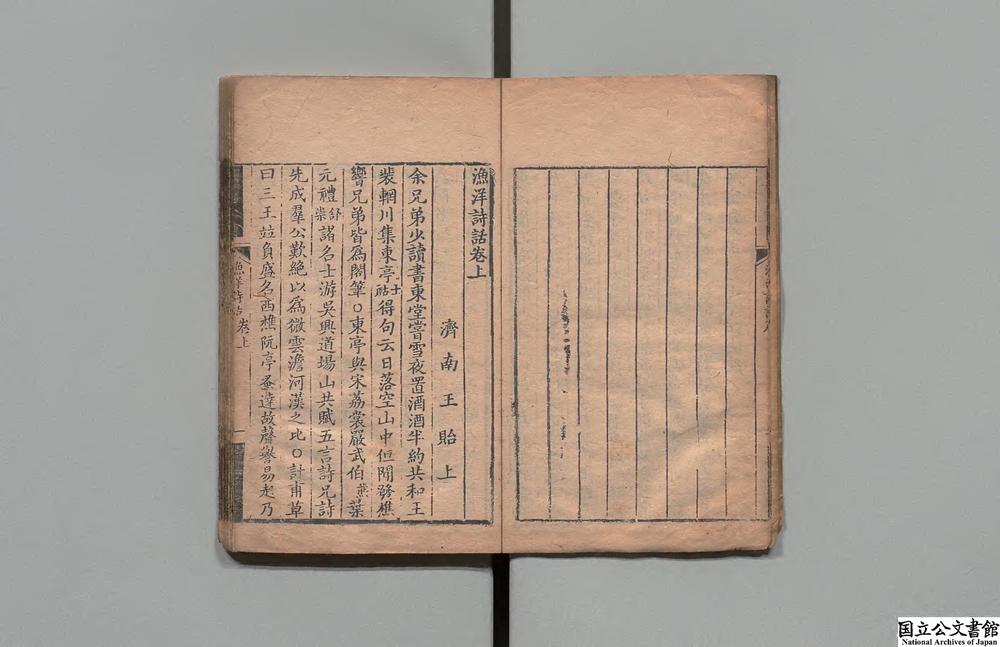 漁洋詩話卷上
濟南王貽上
余兄弟少讀書東堂嘗雪夜置酒酒半約共和王
裴輞川集東亭士祜得句云日落空山中但聞發樵
響兄弟皆爲閣筆○東亭與宋荔裳嚴武伯熊葉
元禮舒崇諸名士游吳興道場山共賦五言詩兄詩
先成羣公歎絶以爲微雲澹河漢之比○計甫草
曰三王竝負盛名西樵阮亭蚤達故聲譽易起乃
漁洋詩話 卷上
国立公文書館
National Archives of Japan